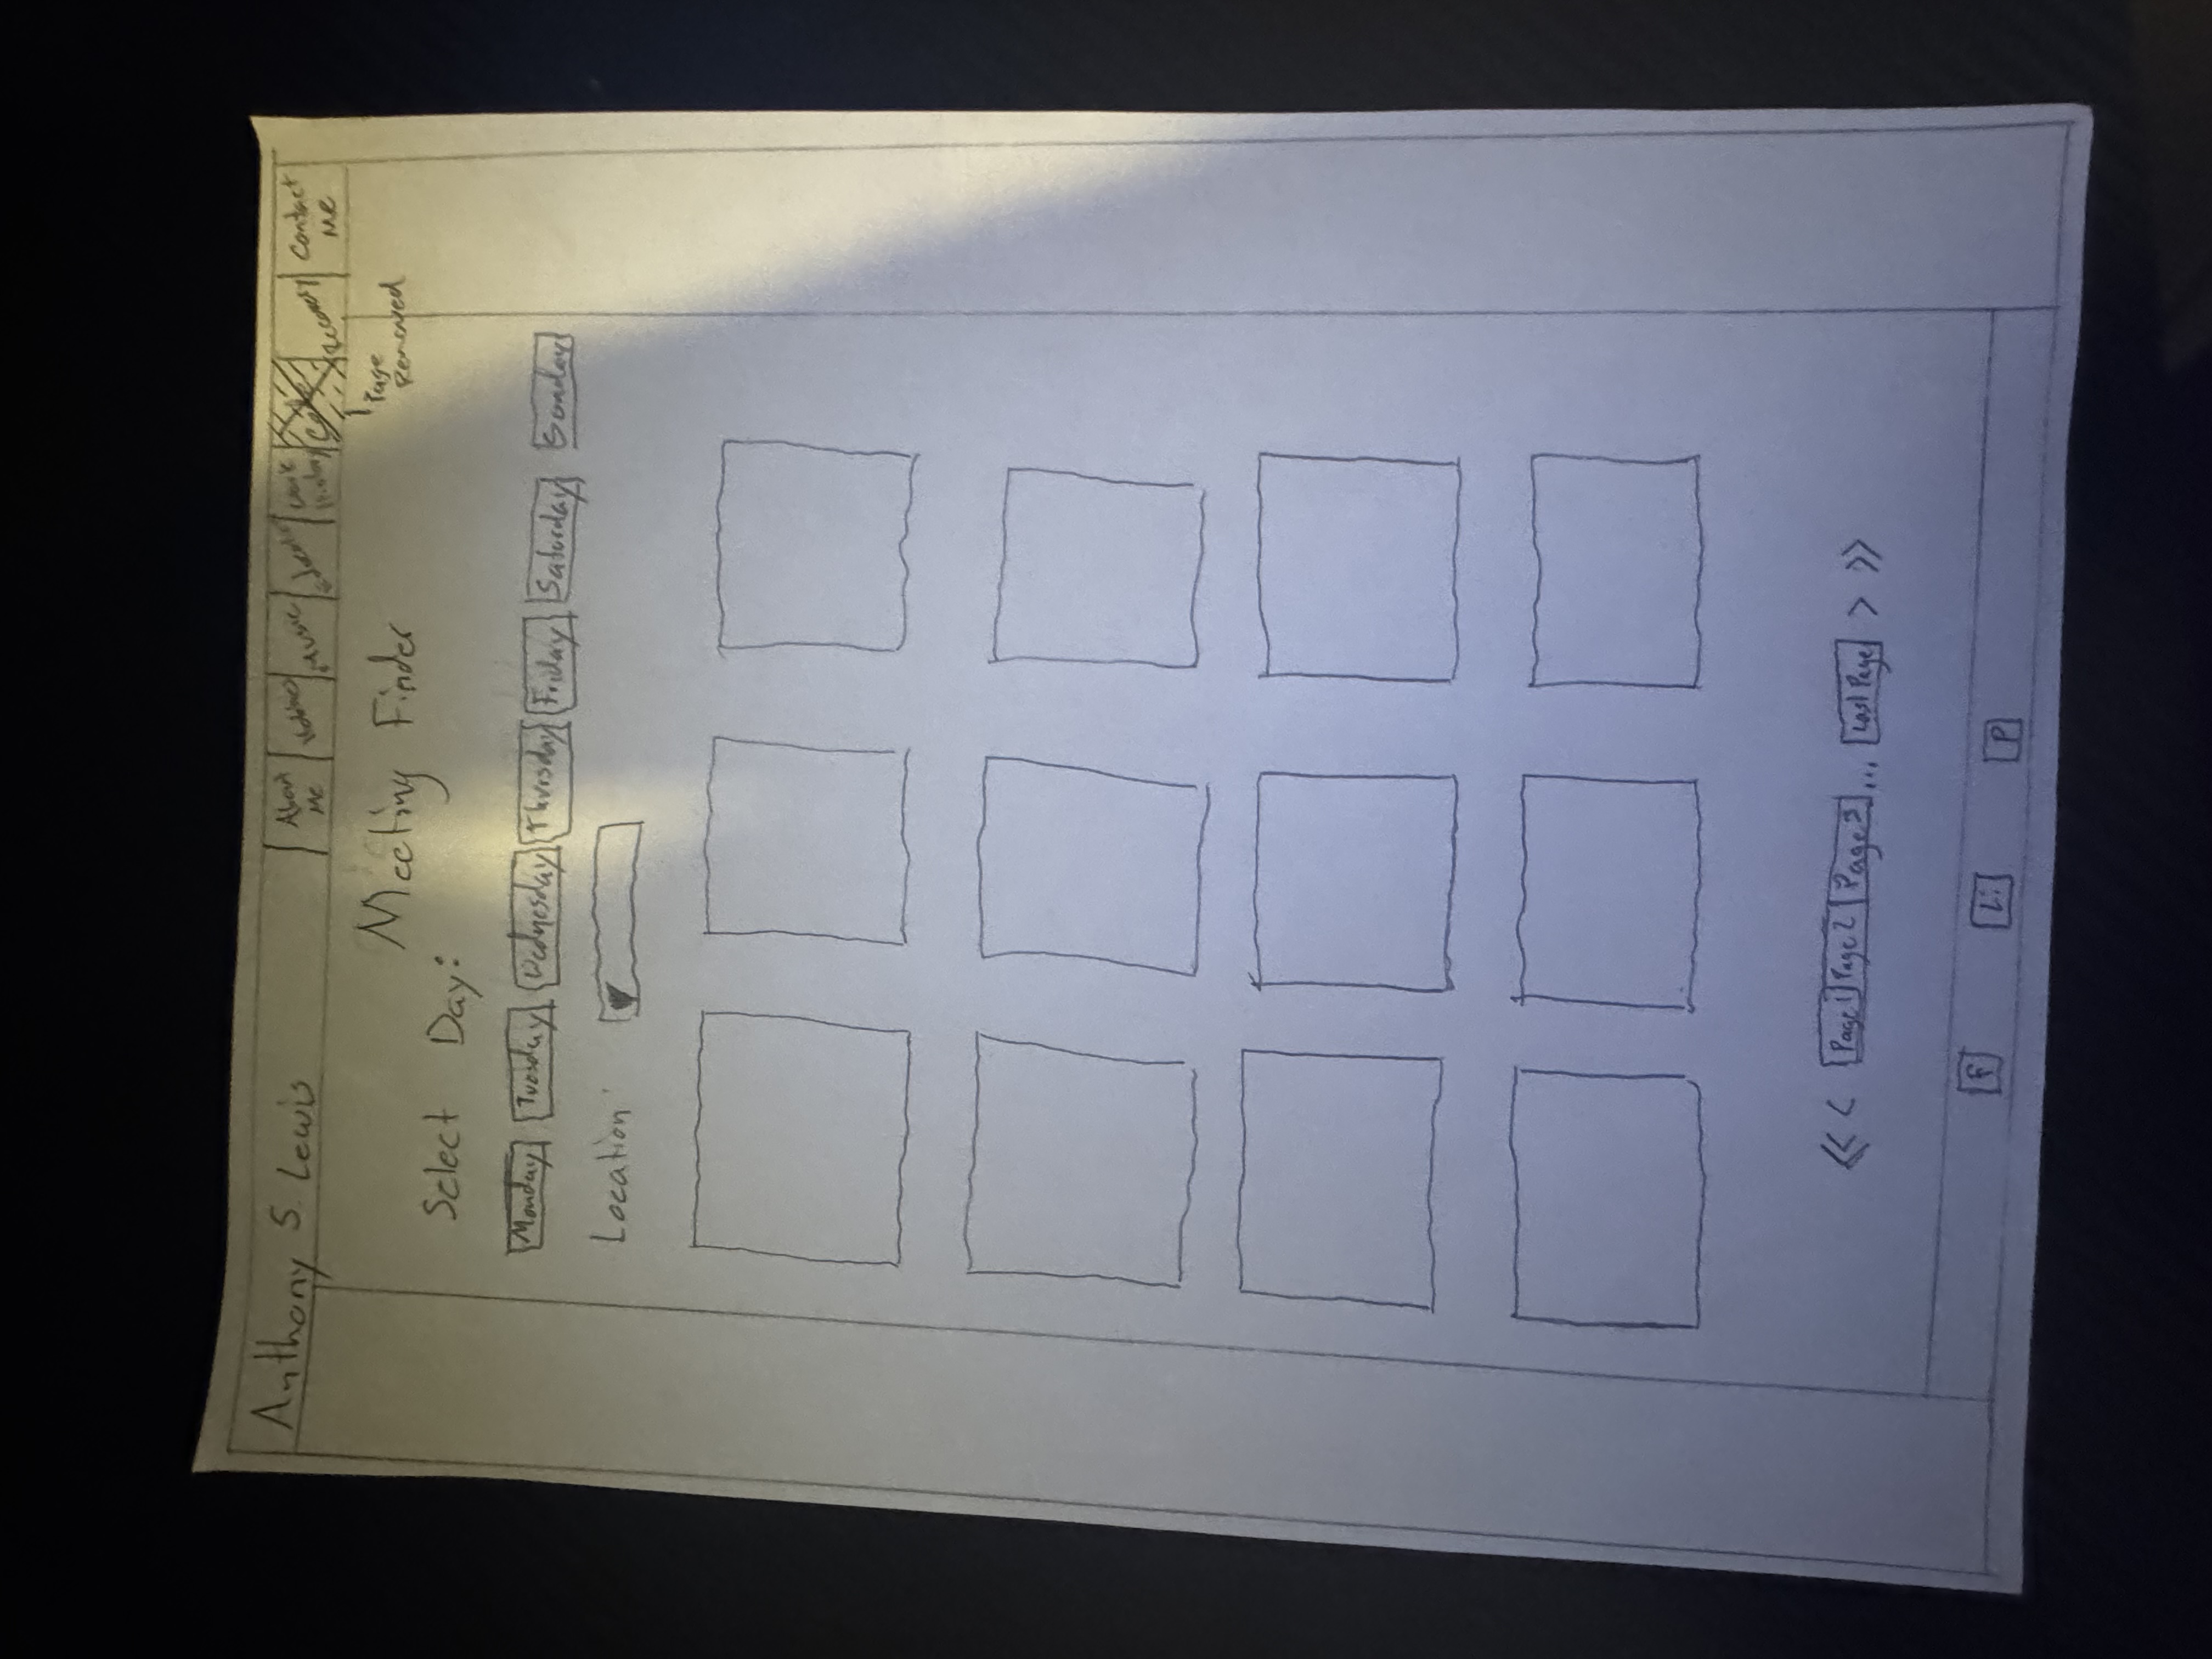 Anthony S. Lewis
About Me
Hobbies
Music
Education
Work History
Recovery
Contact Me
Page Removed
Meeting Finder
Select Day:
Monday Tuesday Wednesday Thursday Friday Saturday Sunday
Location:
<< < Page 1 Page 2 Page 3 ... Last Page > >>
F Li P